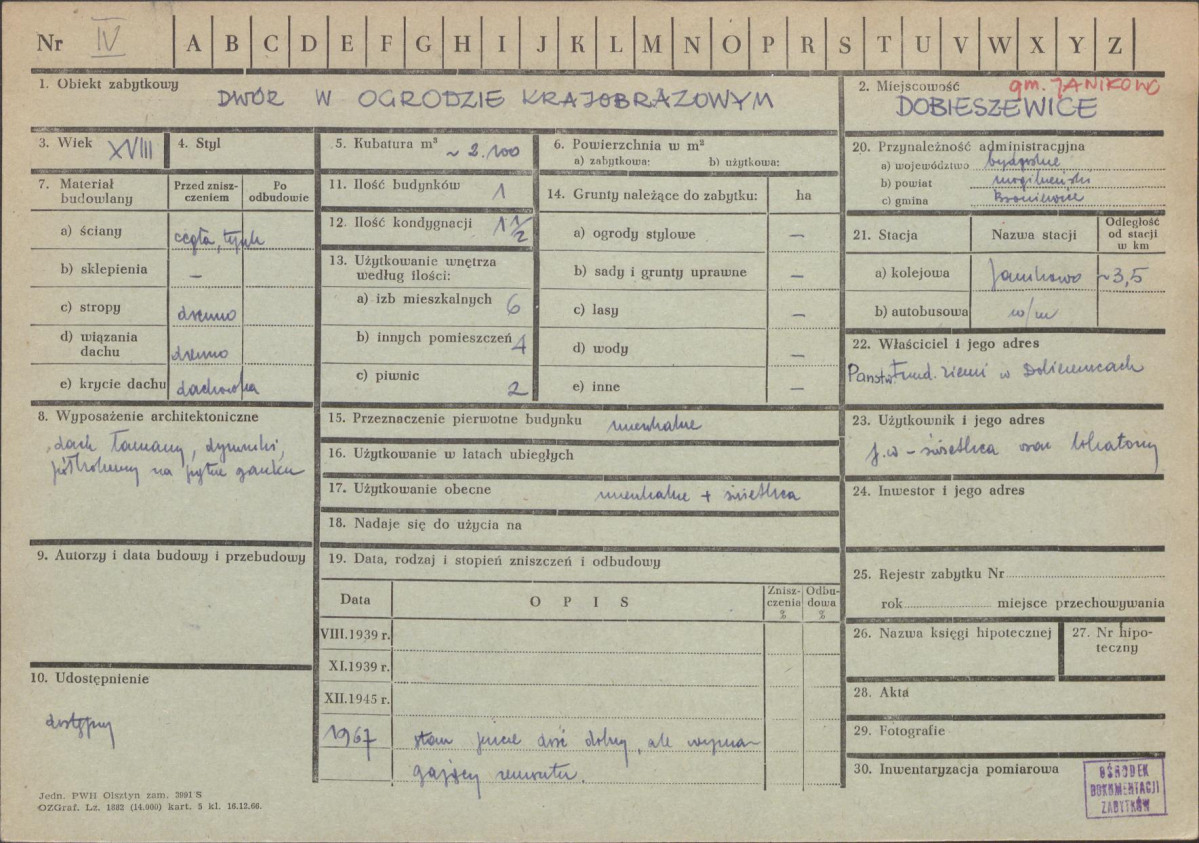 Nr IV A B C D E F G H I J K L M N O P R S T U V W X Y Z
1. Obiekt zabytkowy
DWÓR W OGRODZIE KRAJOBRAZOWYM
2. Miejscowość gm. JANIKOWO
DOBIESZEWICE
3. Wiek XVIII
4. Styl
5. Kubatura m³ ~ 2.100
6. Powierzchnia w m²
a) zabytkowa: b) użytkowa:
20. Przynależność administracyjna
a) województwo bydgoskie
b) powiat mogileński
c) gmina
7. Materiał budowlany
Przed zniszczeniem
Po odbudowie
a) ściany cegła, tynk
b) sklepienia –
c) stropy drewno
d) wiązania dachu drewno
e) krycie dachu dachówka
11. Ilość budynków 1
12. Ilość kondygnacji 1 1/2
13. Użytkowanie wnętrza według ilości:
a) izb mieszkalnych 6
b) innych pomieszczeń 4
c) piwnic 2
14. Grunty należące do zabytku: ha
a) ogrody stylowe –
b) sady i grunty uprawne –
c) lasy –
d) wody –
e) inne –
21. Stacja
Nazwa stacji
Odległość od stacji w km
a) kolejowa Janikowo ~3,5
b) autobusowa w/m
22. Właściciel i jego adres
Państw. Fund. Ziemi w
8. Wyposażenie architektoniczne
dach łamany, dymniki,
półkolumny na ganku
15. Przeznaczenie pierwotne budynku mieszkalne
16. Użytkowanie w latach ubiegłych
17. Użytkowanie obecne mieszkalne + świetlica
18. Nadaje się do użycia na
23. Użytkownik i jego adres
j.w – świetlica oraz lokatorzy
24. Inwestor i jego adres
9. Autorzy i data budowy i przebudowy
19. Data, rodzaj i stopień zniszczeń i odbudowy
Data
OPIS
Zniszczenia %
Odbudowa %
VIII.1939 r.
XI.1939 r.
XII.1945 r.
1967 stan jeszcze dość dobry, ale wyma-
gający remontu.
25. Rejestr zabytku Nr
rok miejsce przechowywania
26. Nazwa księgi hipotecznej
27. Nr hipo-
teczny
28. Akta
29. Fotografie
30. Inwentaryzacja pomiarowa
10. Udostępnienie
dostępny
OŚRODEK
DOKUMENTACJI
ZABYTKÓW
Jedn. PWH Olsztyn zam. 3091 S
OZGraf. Lz. 1882 (14.000) kart. 5 kl. 16.12.66.